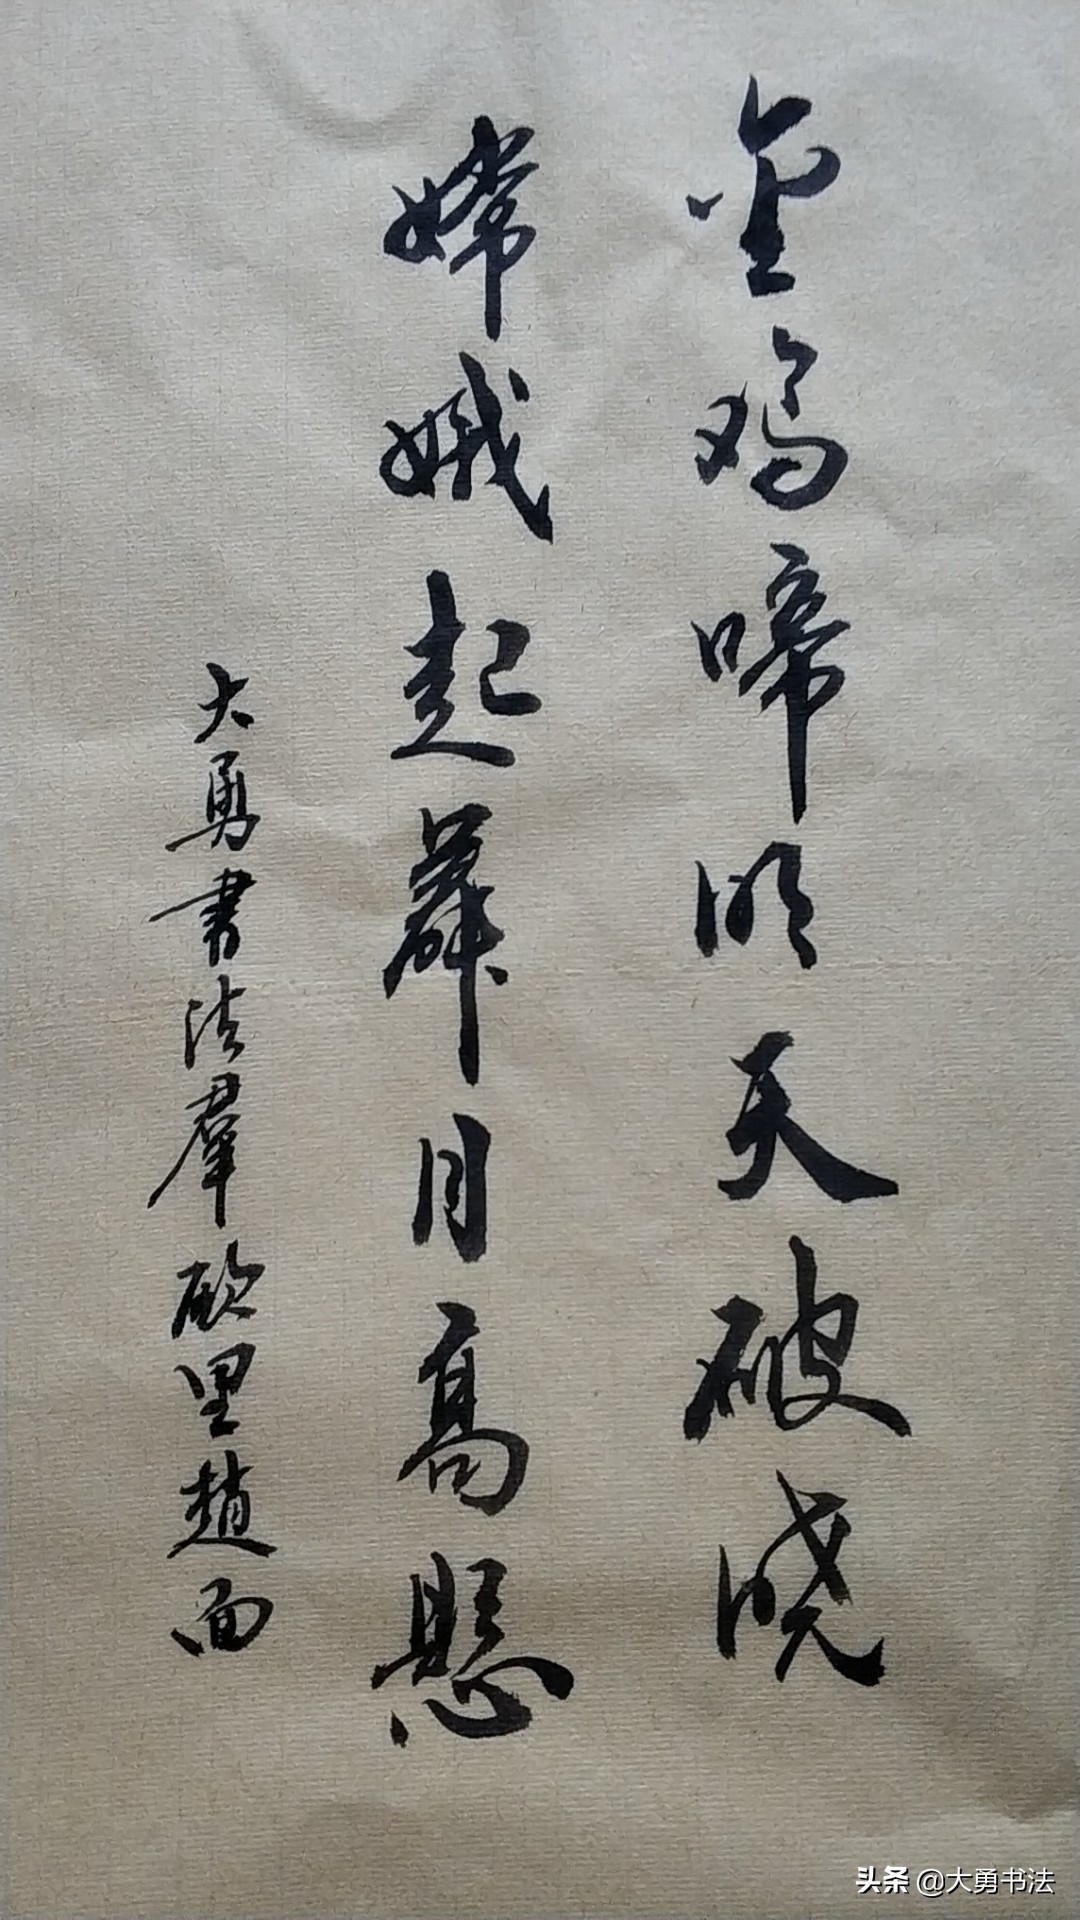 金鸡啼明天破晓
嫦娥起舞月高悬
大勇书法群 里赵面
头条 @大勇书法